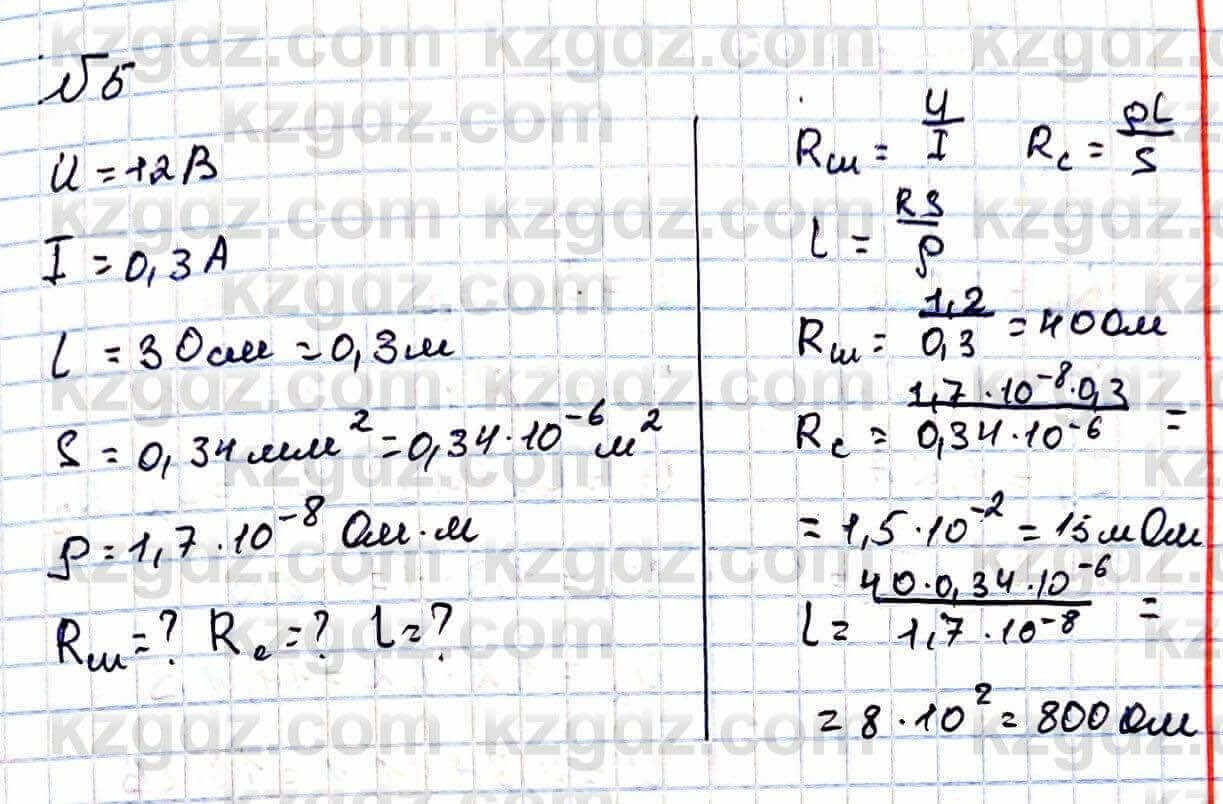 №5
U = 12 В
I = 0,3 А
l = 30 см = 0,3 м
S = 0,34 мм² = 0,34 · 10⁻⁶ м²
ρ = 1,7 · 10⁻⁸ Ом · м
Rш = ? Rс = ? l = ?
Rш = U/I Rс = ρl/S
l = RS/ρ
Rш = 1,2/0,3 = 40 Ом
Rс = 1,7 · 10⁻⁸ · 0,3/0,34 · 10⁻⁶ =
= 1,5 · 10⁻² = 15 мОм
l = 40 · 0,34 · 10⁻⁶/1,7 · 10⁻⁸ =
= 8 · 10² = 800 Ом
kzgdz.com